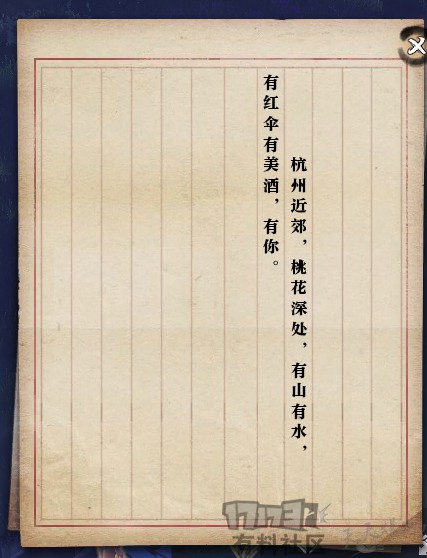 杭州近郊，桃花深处，有山有水，
有红伞有美酒，有你。
有料社区